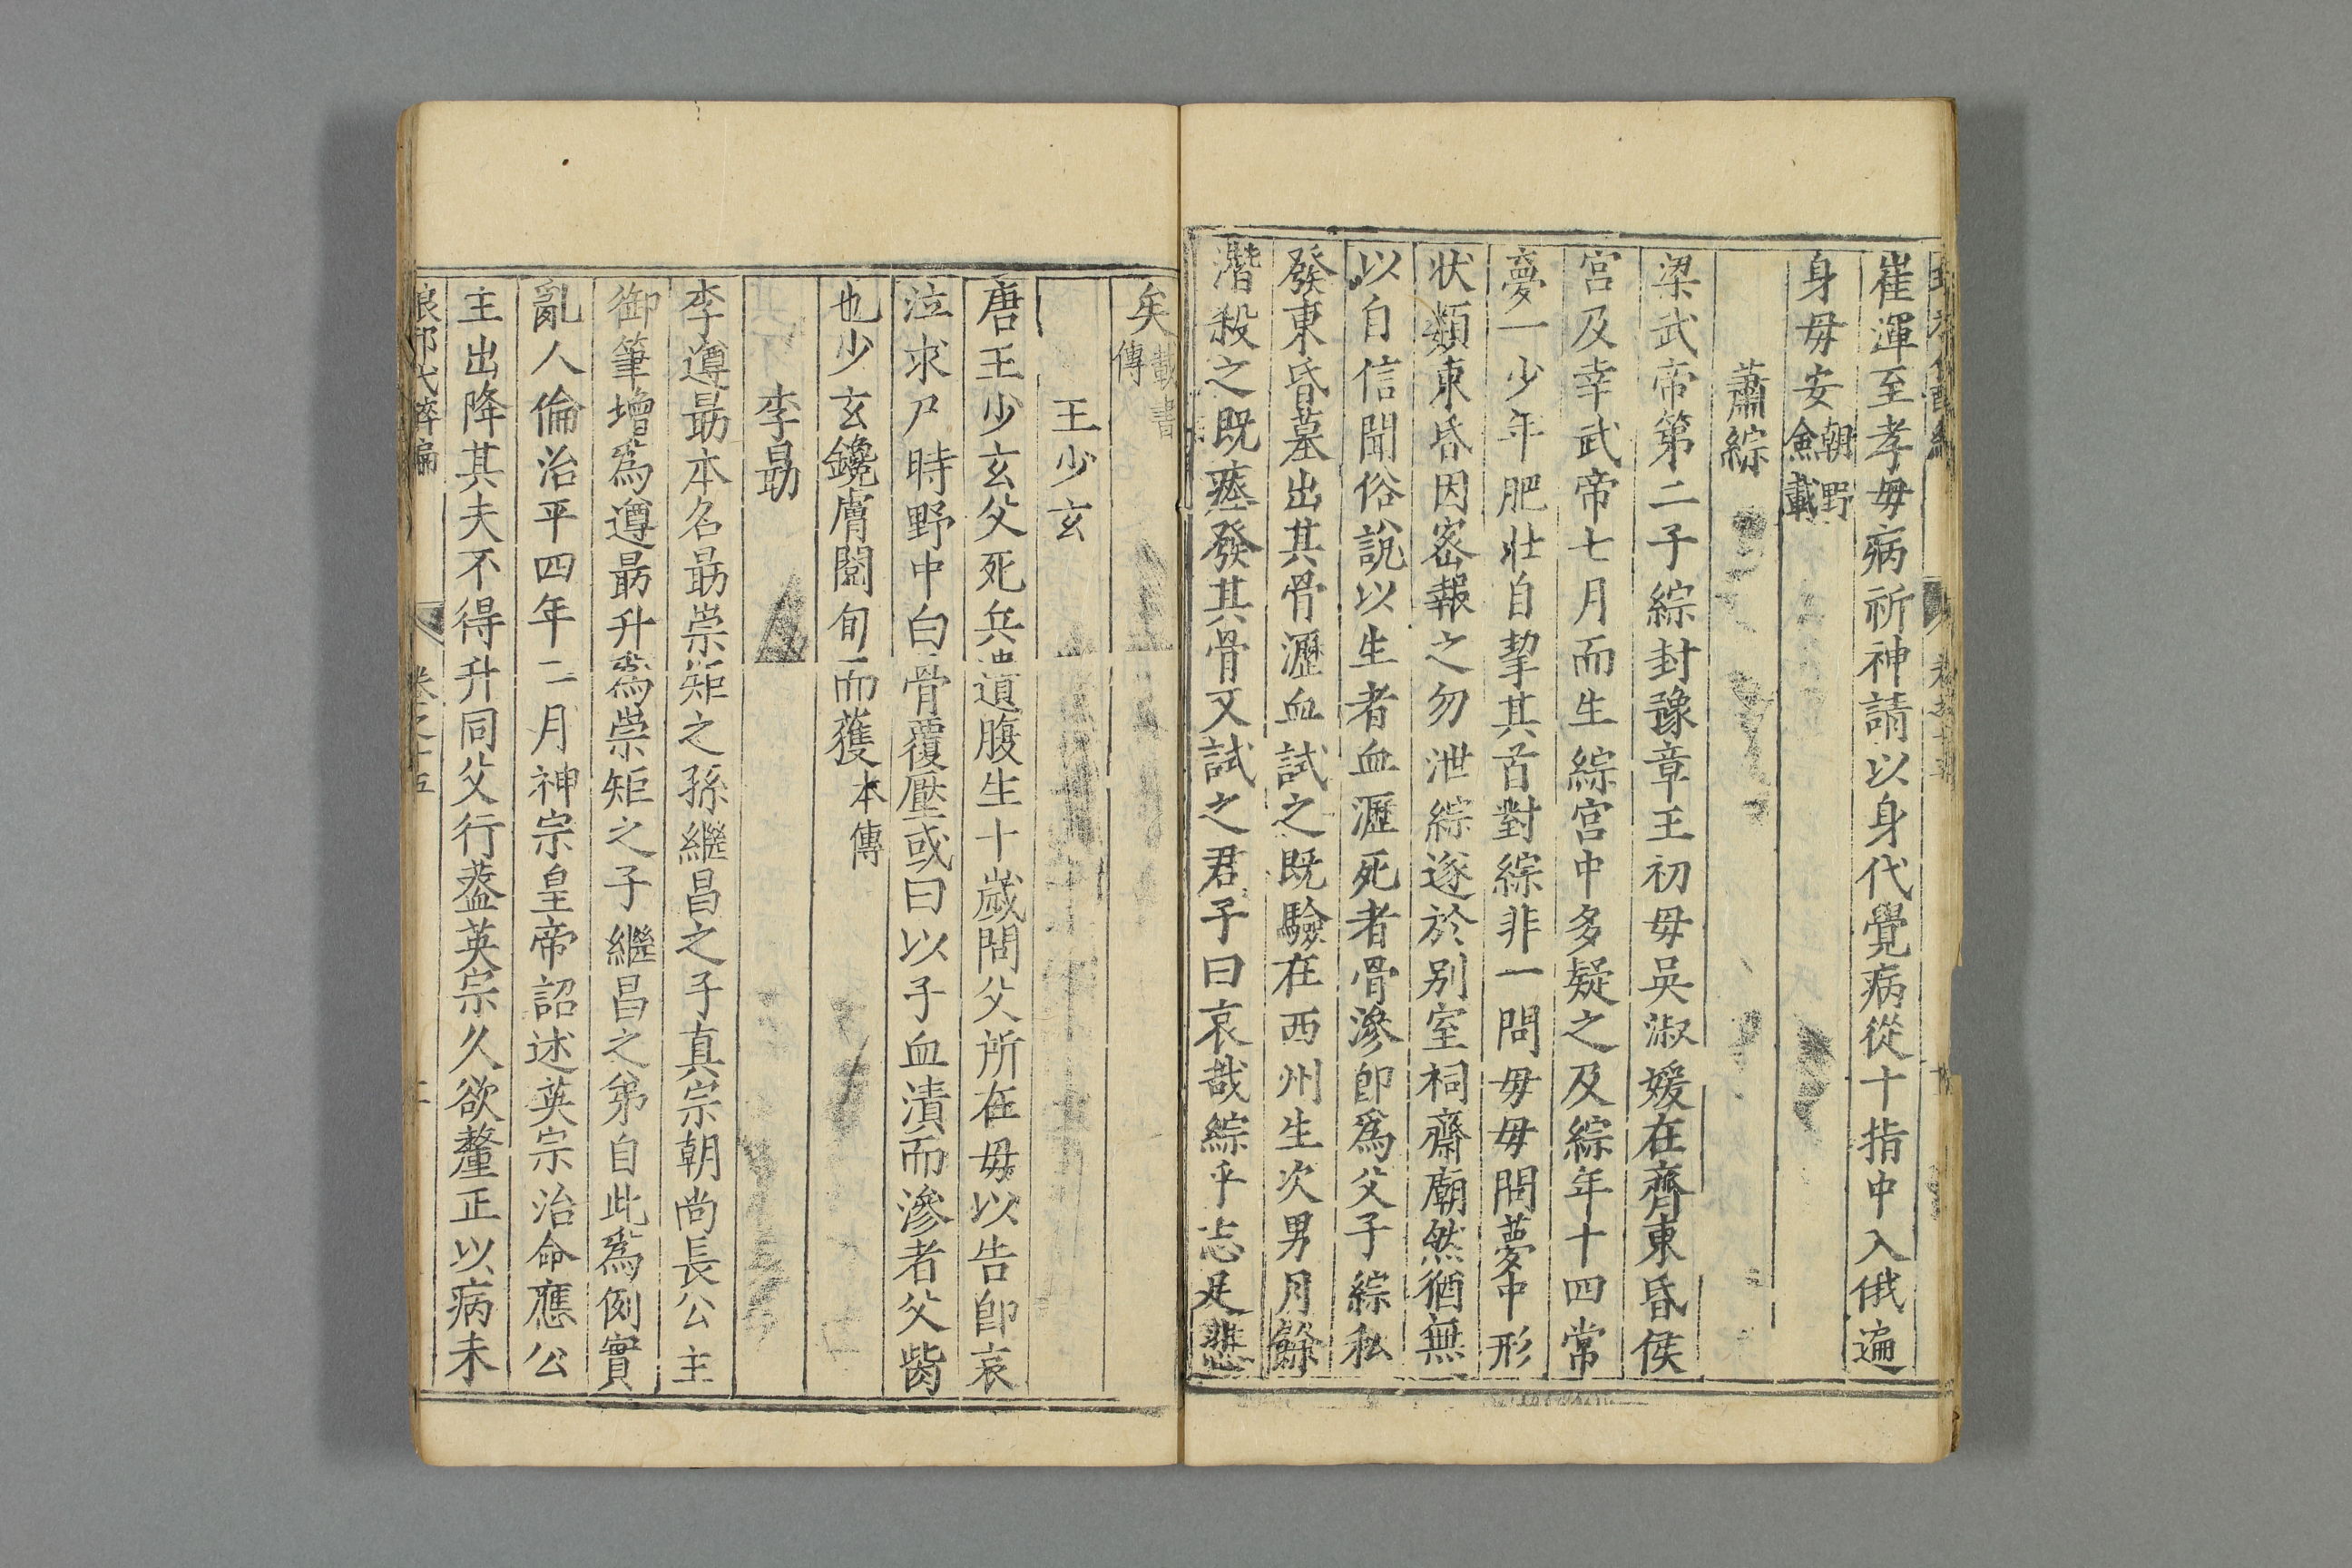 崔渾至孝毋病祈神請以身代覺病從十指中入俄遍
身毋安朝野僉載
蕭綜
梁武帝第二子綜封豫章王初毋吳淑媛在齊東昏侯
宮及幸武帝七月而生綜宮中多疑之及綜年十四常
夢一少年肥壯自挈其首對綜非一問毋毋問夢中形
狀類東昏因密報之勿泄綜遂於别室祠齋廟然猶無
以自信聞俗說以生者血瀝死者骨滲即爲父子綜私
發東昏墓出其骨瀝血試之既驗在西州生次男月餘
潛殺之既瘞發其骨又試之君子曰哀哉綜乎志足悲
矣載書傳
王少玄
唐王少玄父死兵遺腹生十歲問父所在毋以告即哀
泣求尸時野中白骨覆壓或曰以子血漬而滲者父胔
也少玄鑱膚閱旬而獲本傳
李勗
李遵勗本名勗崇矩之孫繼昌之子真宗朝尚長公主
御筆增爲遵勗升爲崇矩之子繼昌之弟自此爲例實
亂人倫治平四年二月神宗皇帝詔述英宗治命應公
主出降其夫不得升同父行葢英宗久欲釐正以病未
琅邪代醉編 卷之十五